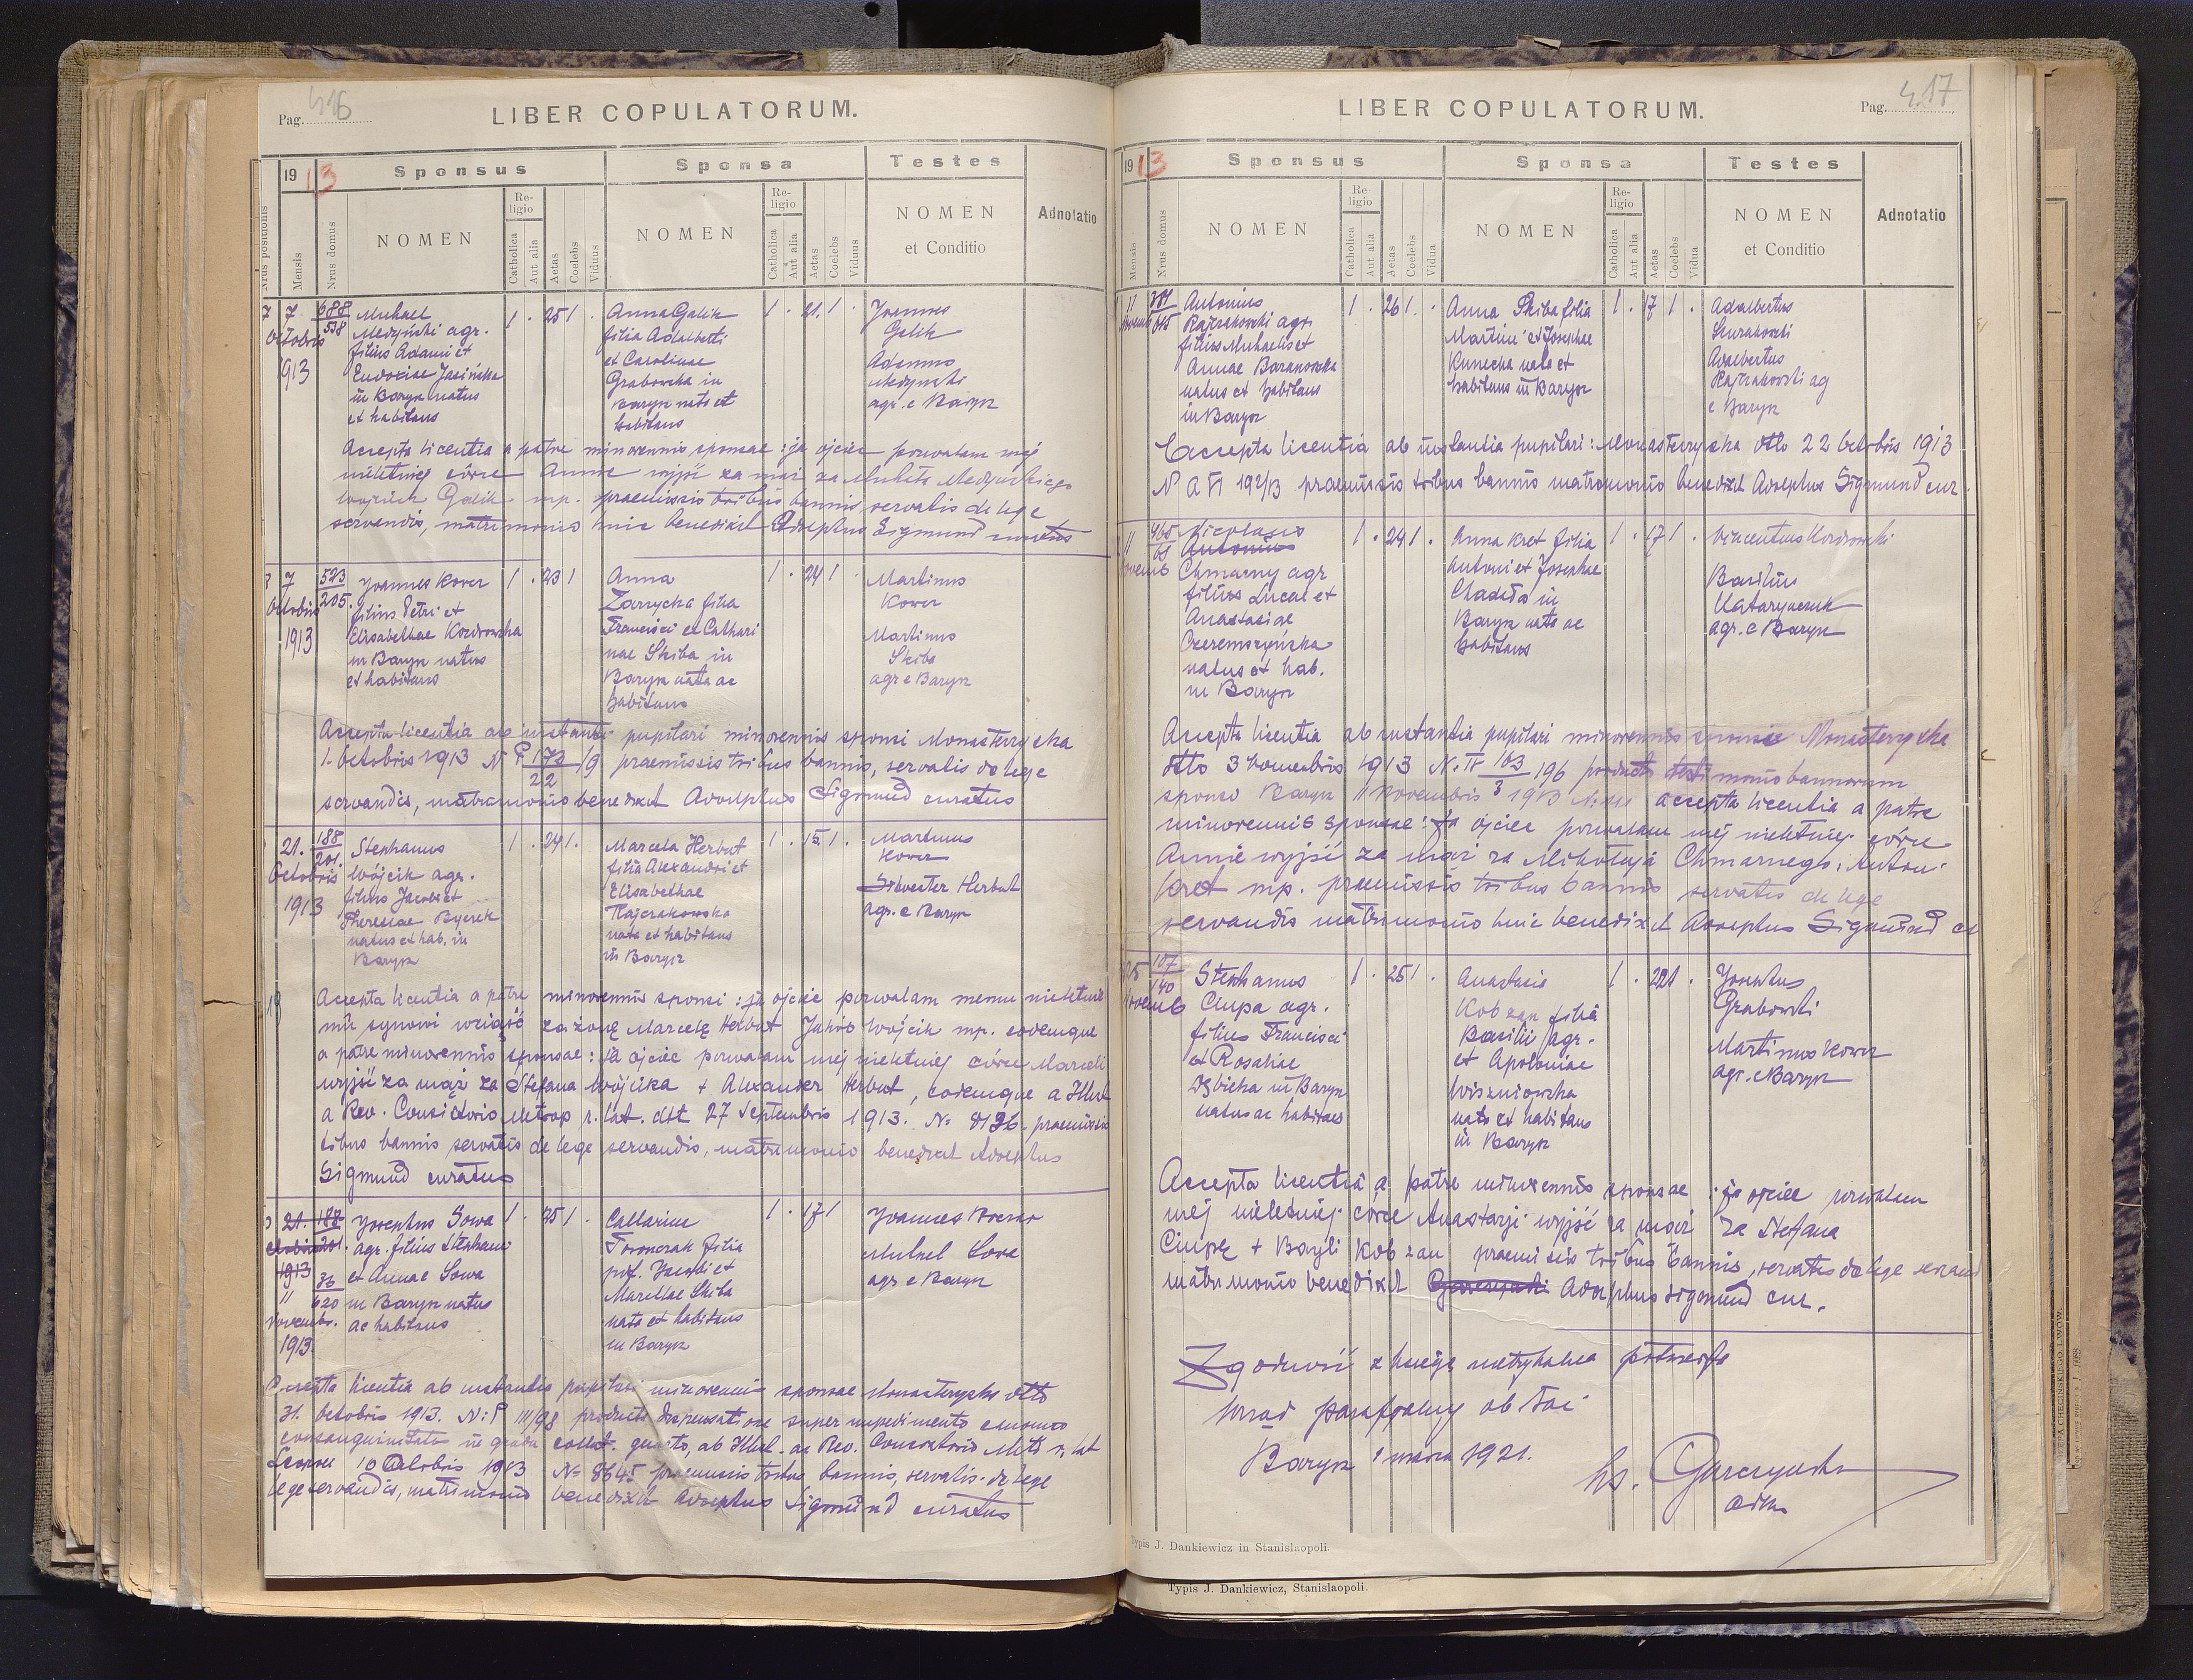 Pag. 416
LIBER COPULATORUM.
19 13
Sponsus
Sponsa
Testes
Nrus positionis
Mensis
Nrus domus
NOMEN
Religio
Catholica
Aut alia
Aetas
Coelebs
Viduus
NOMEN
Religio
Catholica
Aut alia
Aetas
Coelebs
Vidua
NOMEN
et Conditio
Adnotatio
7 Octobris 1913
688
538
Michael
Medyński agr.
filius Adami et
Eudoxiae Jasińska
in Barysz natus
et habitans
1 . 25 1 .
Anna Galik
filia Adalberti
et Carolinae
Grabowska in
Barysz nata et
habitans
1 . 21 . 1 .
Joannes
Galik
Adamus
Medynski
agr. e Barysz
Accepta licentia a patre minorennis sponsae : ja ojciec pozwalam mej
nieletniej córce Annie wyjść za mąż za Michała Medyńskiego
Wojciech Galik mp. praemissis tribus bannis servatis de lege
servandis, matrimonio huic benedixit Adolphus Sigmund curatus
7 Octobris 1913
523
205.
Joannes Kower
filius Petri et
Elisabethae Kordowska
in Barysz natus
et habitans
1 . 23 1
Anna
Zarzycka filia
Francisci et Cathari
nae Skiba in
Barysz nata ac
habitans
1 . 24 1 .
Martinus
Kower
Martinus
Skiba
agr e Barysz
Accepta licentia ab instantia pupilari minorennis sponsi Monasterzyska
1. Octobris 1913 N P 173/22 /9 praemissis tribus bannis, servatis de lege
servandis, matrimonio benedixit Adolphus Sigmund curatus
21. Octobris 1913
188
201.
Stephanus
Wójcik agr.
filius Jacobi et
Theresiae Byczek
natus et hab. in
Barysz
1 . 24 1 .
Marcela Herbut
filia Alexandri et
Elisabethae
Rajczakowska
nata et habitans
in Barysz
1 . 15. 1 .
Martinus
Kower
Silvester Herbut
agr. e Barysz
Accepta licentia a patre minorennis sponsi : ja ojciec pozwalam memu nieletnie
mu synowi wziąść za żonę Marcelę Herbut Jakób Wójcik mp. eodemque
a patre minorennis sponsae : ja ojciec pozwalam mej nieletniej córce Marceli
wyjść za mąż za Stefana Wójcika + Alexander Herbut, eodemque a Illust
a Rev. Consistorio Metrop r. lat. dtt 27 Septembris 1913. N= 8136. praemissis
tribus bannis servatis de lege servandis, matrimonio benedixit Adolphus
Sigmund curatus
21. Octobris 1913
188
201.
11 Novemb. 1913
36
620
Josephus Sowa
agr. filius Stephani
et Annae Sowa
in Barysz natus
ac habitans
1 . 25 1 .
Catharina
Toronczak filia
Jacobi et
Mariae Skiba
nata et habitans
in Barysz
1 . 17 1
Joannes
Michael Sowa
agr e Barysz
Accepta licentia ab instantia pupilari minorennis sponsae Monasterzyska dtto
31. Octobris 1913. N: P III/98 producta dispensatione super impedimento
consanguinitatis in gradu collat. quarto, ab Illust. ac Rev. Consistorio Metr r. lat
Leopoli 10 Octobris 1913 N= 8645 praemissis tribus bannis, servatis de lege
lege servandis, matrimonio benedixit Adolphus Sigmund curatus
Pag. 417
LIBER COPULATORUM.
19 13
Sponsus
Sponsa
Testes
Mensis
Nrus domus
NOMEN
Religio
Catholica
Aut alia
Aetas
Coelebs
Vidua
NOMEN
Religio
Catholica
Aut alia
Aetas
Coelebs
Vidua
NOMEN
et Conditio
Adnotatio
11 Novemb
645
Antonius
Rajczakowski agr.
filius Michaelis et
Annae Baranowska
natus et habitans
in Barysz
1 . 26 1 . .
Anna Skiba filia
Martini et Josephae
Kunecka nata et
habitans in Barysz
1 . 17 1 .
Adalbertus
Adalbertus
Rajczakowski ag
e Barysz
Accepta licentia ab instantia pupilari : Monasterzyska dtto 22 Octobris 1913
N A VI 192/13 praemissis tribus bannis matrimonio benedixit Adolphus Sigmund cur.
11 Novemb
465
65
Nicolaus
Antonius
Chmarny agr
filius Lucae et
Anastasiae
Czeremszyńska
natus et hab.
in Barysz
1 . 24 1 .
Anna Kret filia
Antoni et Josephae
Chadida in
Barysz nata ac
habitans
1 . 17 1 .
Vincentius Kordowski
Basilius
Kataryniczuk
agr. e Barysz
Accepta licentia ab instantia pupilari minorennis sponsi Monasterzyska
dtto 3 Novembris 1913 N. IV 103/3 196 producto testimonio bannorum
sponso Barysz 11 Novembris 1913 accepta licentia a patre
minorennis sponsae : Ja ojciec pozwalam mej nieletniej córce
Annie wyjść za mąż za Mikołaja Chmarnego : Antoni
Kret mp. praemissis tribus bannis servatis de lege
servandis matrimonio huic benedixit Adolphus Sigmund cu
25 Novemb
107
140
Stephanus
Ciupa agr.
filius Francisci
et Rosaliae
Dębicka in Barysz
natus ac habitans
1 . 25 1 .
Anastasia
Kobzan filia
Basilii agr.
et Apoloniae
Wiszniowska
nata et habitans
in Barysz
1 . 22 1 .
Josephus
Grabowski
Martinus Kower
agr. e Barysz
Accepta licentia a patre minorennis sponsae : ja ojciec pozwalam
mej nieletniej córce Anastazji wyjść za mąż za Stefana
Ciupę + Bazyli Kobzan praemissis tribus bannis, servatis de lege servand
matrimonio benedixit Adolphus Sigmund cur.
Zgodność z księgą metrykalną potwierdza
Urząd parafialny ob łac
Barysz 1 marca 1921.
ks. Garczyński
adm
Typis J. Dankiewicz in Stanislaopoli.
Typis J. Dankiewicz, Stanislaopoli.